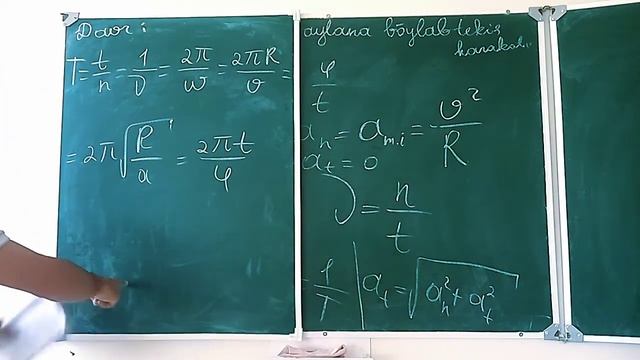 Davr:
T = t/n = 1/ν = 2π/ω = 2πR/υ =
= 2π√(R/a) = 2πt/φ
aylana bo'ylab tekis
harakat
φ/t
a_n = a_m.i = υ²/R
a_t = 0
ν = n/t
= 1/T | a_t = √(a_n² + a_t²)